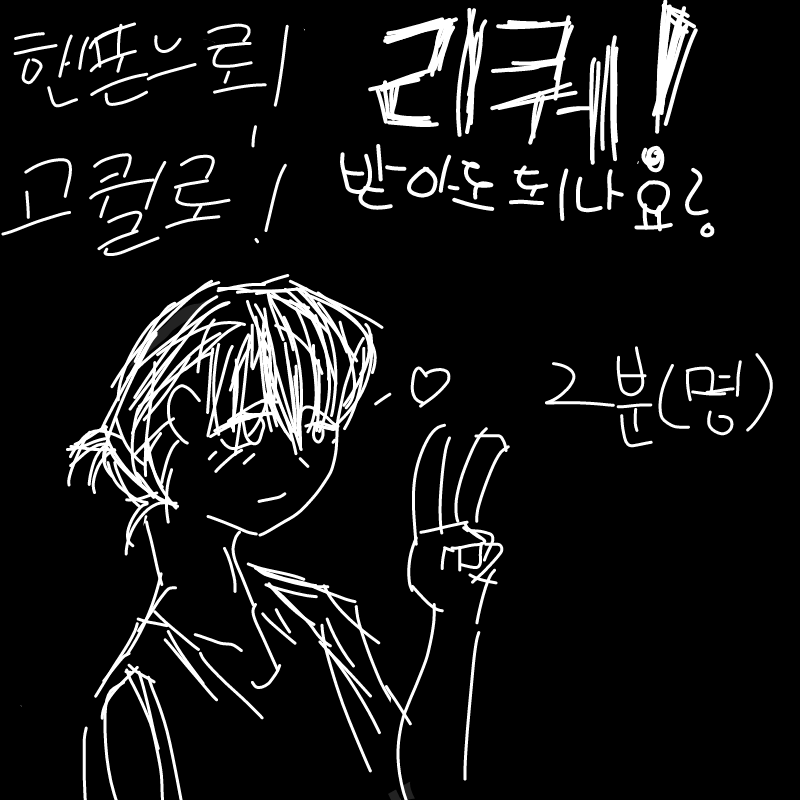 한판으로!
고퀄로!
리퀘!
받아도 되나요?
2분(명)